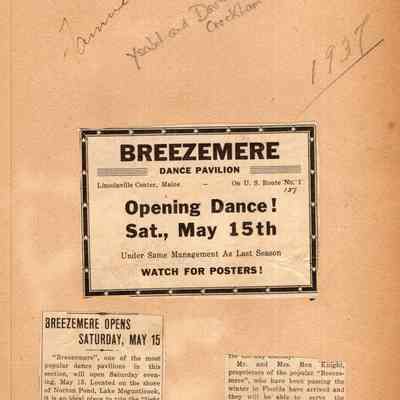 Ysabel and
Crockham
1937
BREEZEMERE
DANCE PAVILION
Lincolnville Center, Maine – On U. S. Route No. 1
137
Opening Dance!
Sat., May 15th
Under Same Management As Last Season
WATCH FOR POSTERS!
BREEZEMERE OPENS
SATURDAY, MAY 15
"Breezemere", one of the most
popular dance pavilions in this
section, will open Saturday even-
ing, May 15. Located on the shore
of Norton Pond, Lake Megunticook,
it is an ideal place to
Mr. and Mrs. Ben Knight,
proprietors of the popular "Breeze-
mere", who have been passing the
winter in Florida have arrived and
they will be able to serve the